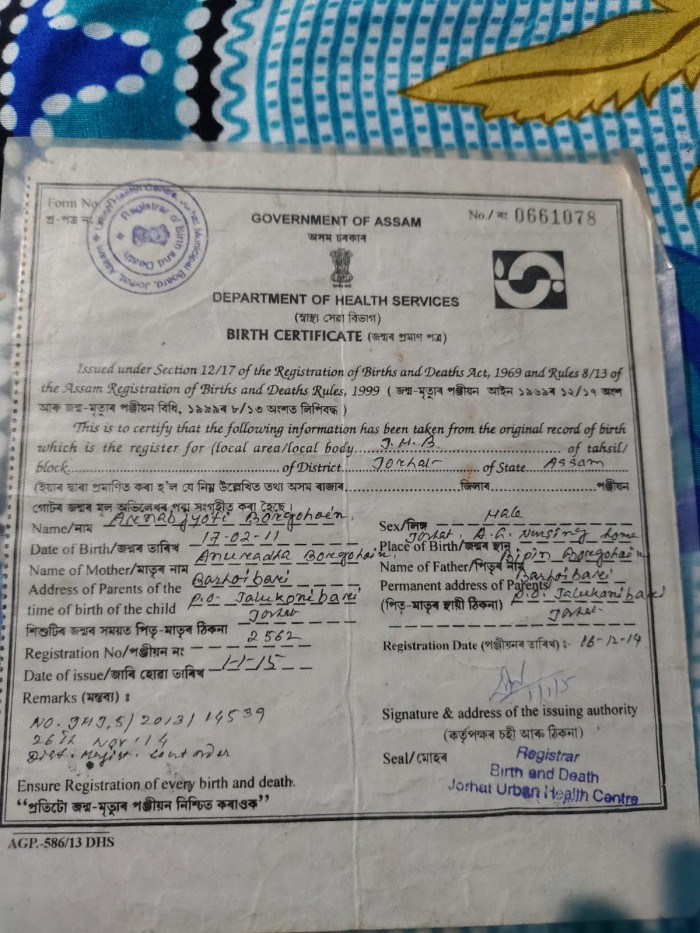 Form No.
প্ৰ-পত্ৰ নং
Urban Health Centre, Jorhat Municipal Board, Jorhat, Assam
Registrar of Birth and Death
GOVERNMENT OF ASSAM
অসম চৰকাৰ
No./ নং 0661078
DEPARTMENT OF HEALTH SERVICES
(স্বাস্থ্য সেৱা বিভাগ)
BIRTH CERTIFICATE (জন্মৰ প্ৰমাণ পত্ৰ)
Issued under Section 12/17 of the Registration of Births and Deaths Act, 1969 and Rules 8/13 of
the Assam Registration of Births and Deaths Rules, 1999 ( জন্ম-মৃত্যুৰ পঞ্জীয়ন আইন ১৯৬৯ৰ ১২/১৭ অংশ
আৰু জন্ম-মৃত্যুৰ পঞ্জীয়ন বিধি, ১৯৯৯ৰ ৮/১৩ অংশত লিপিবদ্ধ )
This is to certify that the following information has been taken from the original record of birth
which is the register for (local area/local body J.M.B of tahsil/
block of District Jorhat of State Assam
(ইয়াৰ দ্বাৰা প্ৰমাণিত কৰা হ'ল যে নিম্ন উল্লেখিত তথ্য অসম ৰাজ্যৰ জিলাৰ পঞ্জীয়ন
গোটৰ জন্মৰ মূল অভিলেখৰ পৰা সংগৃহীত কৰা হৈছে।)
Name/নাম Arnab Jyoti Borgohain
Sex/লিঙ্গ Male
Date of Birth/জন্মৰ তাৰিখ 17-02-11
Place of Birth/জন্মৰ স্থান Jorhat, A.G. Nursing home
Name of Mother/মাতৃৰ নাম Anuradha Borgohain
Name of Father/পিতৃৰ নাম Bipin Borgohain
Address of Parents of the
time of birth of the child
শিশুটিৰ জন্মৰ সময়ত পিতৃ-মাতৃৰ ঠিকনা
Barhoibari
P.O. Jalukonibari
Jorhat
Permanent address of Parents/
(পিতৃ-মাতৃৰ স্থায়ী ঠিকনা)
Barhoibari
P.O. Jalukonibari
Jorhat
Registration No/পঞ্জীয়ন নং 2562
Registration Date (পঞ্জীয়নৰ তাৰিখ) :- 16-12-14
Date of issue/জাৰি হোৱা তাৰিখ 1-1-15
1/1/15
Remarks (মন্তব্য) :
NO. JHJ,5/2013/14539
26th Nov '14
Dist. Magist. Court order
Signature & address of the issuing authority
(কৰ্তৃপক্ষৰ চহী আৰু ঠিকনা)
Seal/মোহৰ
Registrar
Birth and Death
Jorhat Urban Health Centre
Ensure Registration of every birth and death.
“প্ৰতিটো জন্ম-মৃত্যুৰ পঞ্জীয়ন নিশ্চিত কৰাওক”
AGP.-586/13 DHS